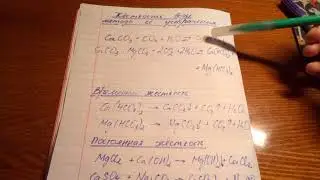 Жесткость воды
методы ее устранения
CaCO₃ + CO₂ + H₂O ⇄
CaCO₃ · MgCO₃ + 2CO₂ + 2H₂O ⇄ Ca(HCO₃)₂
+ Mg(HCO₃)₂
Временная жесткость
Ca(HCO₃)₂ → CaCO₃↓ + CO₂↑ + H₂O
Mg(HCO₃)₂ → MgCO₃↓ + CO₂↑ + H₂O
Постоянная жесткость
MgCl₂ + Ca(OH)₂ → Mg(OH)₂↓ + CaCl₂
CaSO₄ + Na₂CO₃ →